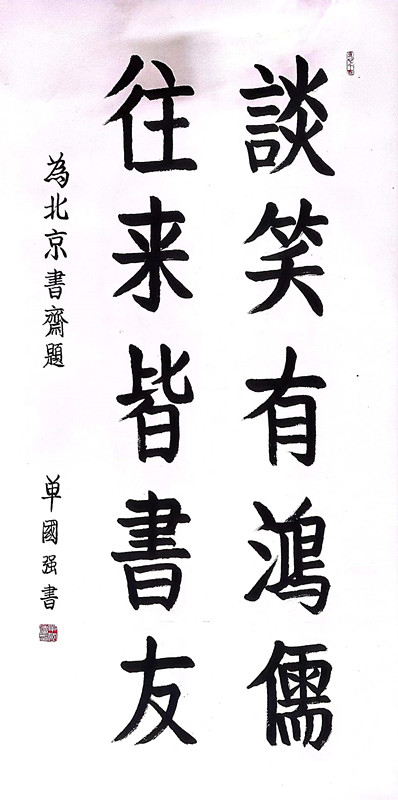 談笑有鴻儒
往来皆書友
為北京書齋題
单國强書